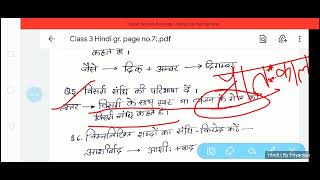 Class 3 Hindi gr. page no.7;.pdf
कहते हैं।
जैसे → दिक् + अम्बर → दिगम्बर
Q5. विसर्ग संधि की परिभाषा दें।
उत्तर → विसर्ग के साथ स्वर या व्यंजन के मेल को
विसर्ग संधि कहते हैं।
प्रातःकाल
Q6. निम्नलिखित शब्दों का संधि-विच्छेद करें-
आशीर्वाद → आशीः + वाद
Hindi ( By Priyanka)